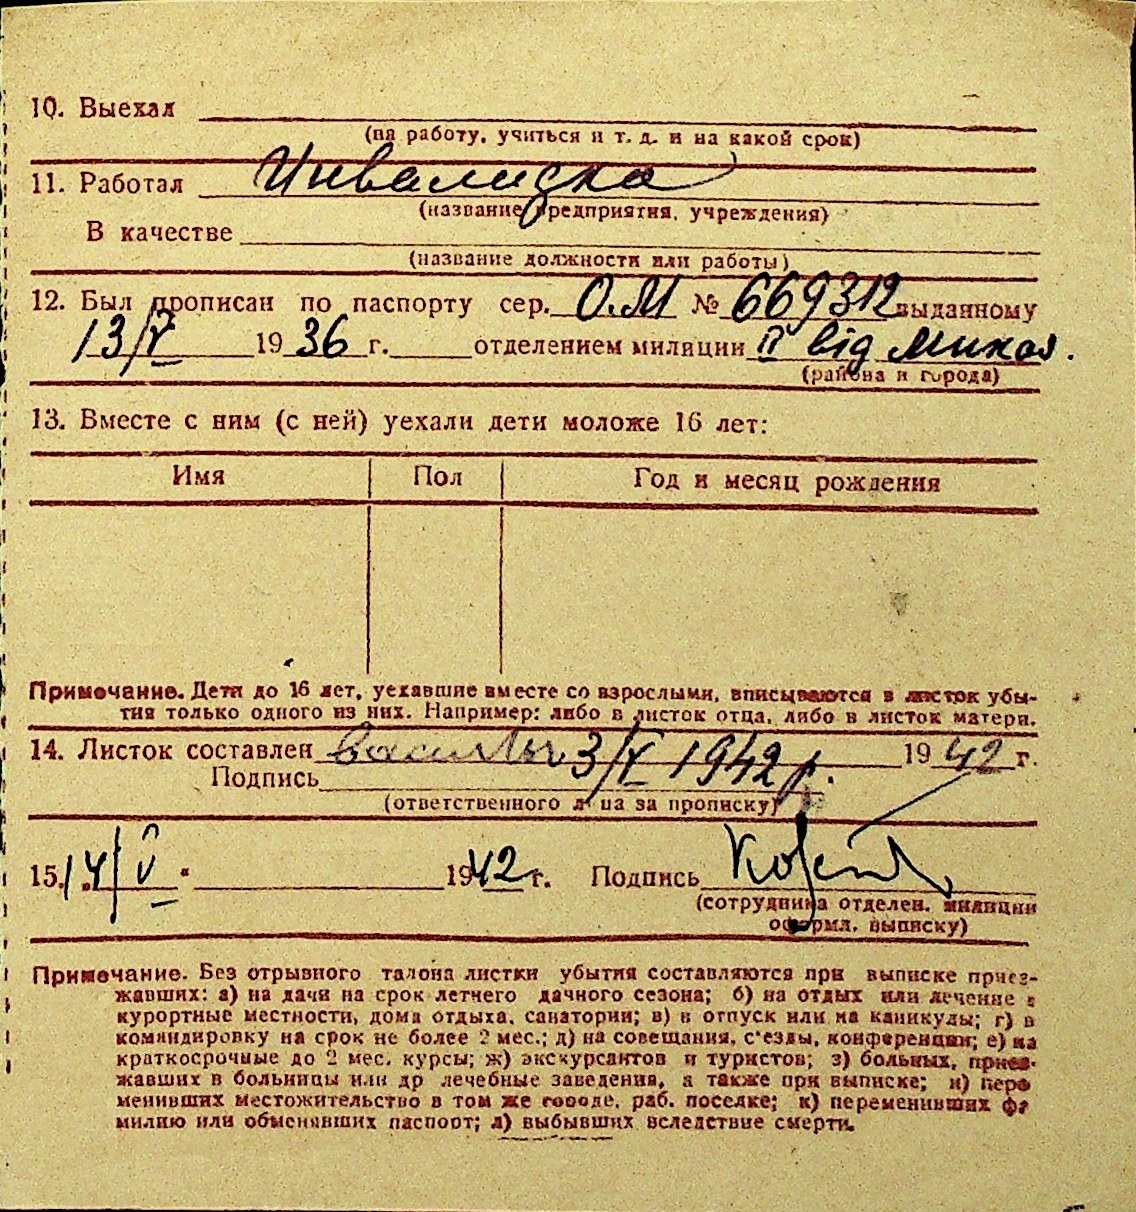 10. Выехал
(на работу, учиться и т. д. и на какой срок)
11. Работал Инвалидка
(название предприятия, учреждения)
В качестве
(название должности или работы)
12. Был прописан по паспорту сер. О.М № 669312 выданному
13/V 1936 г. отделением милиции II від Микол.
(района и города)
13. Вместе с ним (с ней) уехали дети моложе 16 лет:
Имя Пол Год и месяц рождения
Примечание. Дети до 16 лет, уехавшие вместе со взрослыми, вписываются в листок убы-
тия только одного из них. Например: либо в листок отца, либо в листок матери.
14. Листок составлен 3/V 1942 р. 1942 г.
Подпись
(ответственного лица за прописку)
15. 14/V 1942 г. Подпись
(сотрудника отделен. милиции
оформл. выписку)
Примечание. Без отрывного талона листки убытия составляются при выписке приез-
жавших: а) на дачи на срок летнего дачного сезона; б) на отдых или лечение в
курортные местности, дома отдыха, санатории; в) в отпуск или на каникулы; г) в
командировку на срок не более 2 мес.; д) на совещания, с'езды, конференции; е) на
краткосрочные до 2 мес. курсы; ж) экскурсантов и туристов; з) больных, приез-
жавших в больницы или др лечебные заведения, а также при выписке; и) пере
менивших местожительство в том же городе, раб. поселке; к) переменивших фа
милию или обменявших паспорт; л) выбывших вследствие смерти.